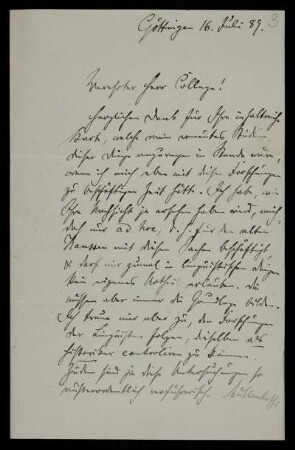 Göttingen 16. Juli 89. 3
Verehrter Herr College!
Herzlichen Dank für Ihre inhaltreiche
Karte, welche mein erneutes Studium
dieser Dinge anzuregen im Stande wäre,
wenn ich mich eben mit diesen Forschungen
zu beschäftigen Zeit hätte. Ich habe, wie
Ihre Nachsicht ja ersehen haben wird, mich
doch nur ad hoc, d. h. für den alten
mit diesen Sachen beschäftigt
& darf mir zumal in linguistischen Dingen
kein eigenes Urtheil erlauben. Die
müssen aber immer die Grundlage bilden.
Ich traue mir aber zu, den Forschungen
der Linguisten folgen, dieselben als
Historiker controliren zu können.
Zudem sind ja diese Untersuchungen so
ausserordentlich verführerisch.